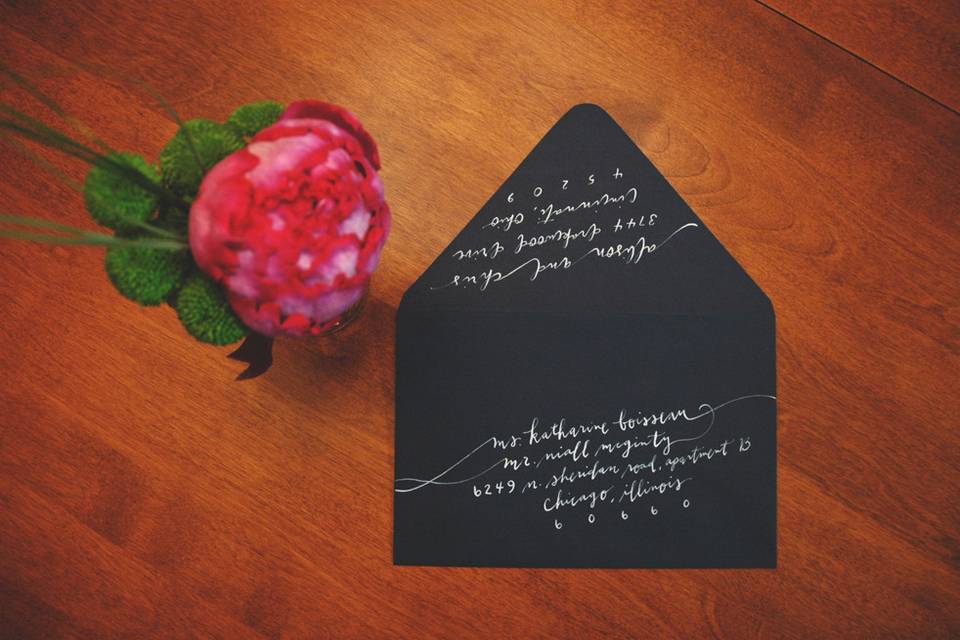 allison and chris
3744 drakewood drive
cincinnati, ohio
4 5 2 0 9
ms. katharine boisseau
mr. niall mcginty
6249 n. sheridan road, apartment 2B
chicago, illinois
6 0 6 6 0